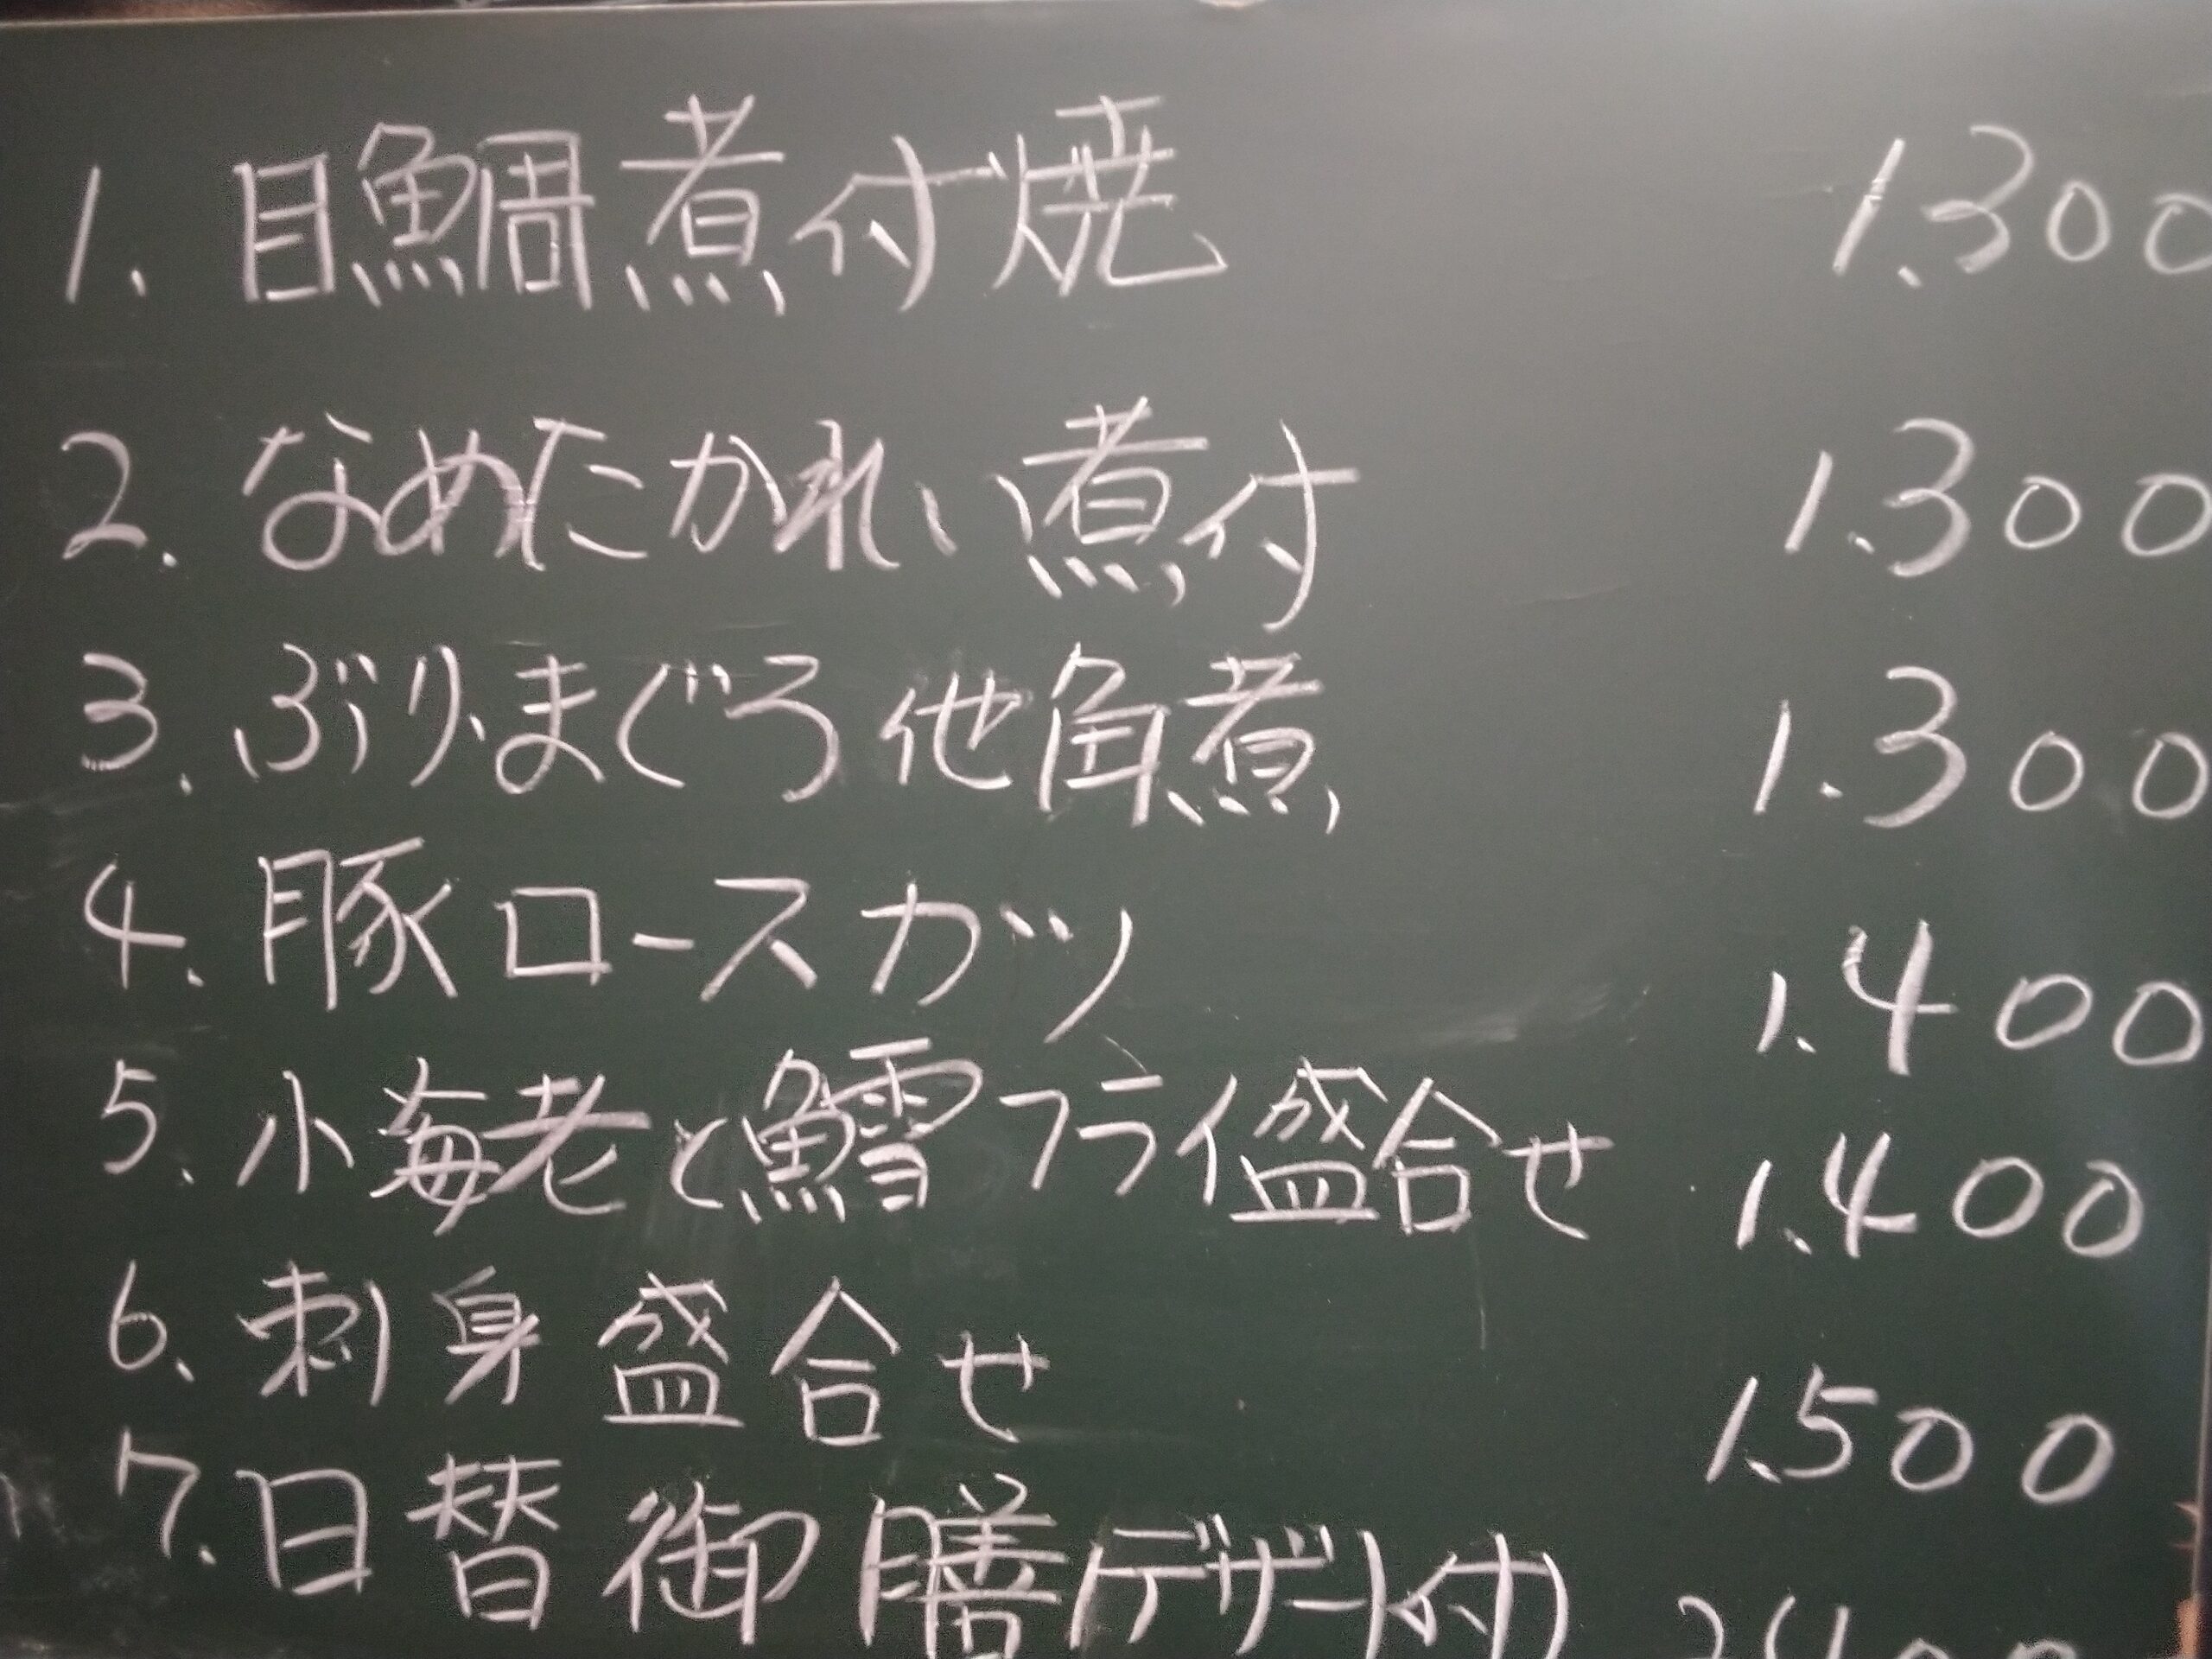 1. 目鯛煮付焼 1.300
2. なめたかれい煮付 1.300
3. ぶり.まぐろ他角煮 1.300
4. 豚ロースカツ 1.400
5. 小海老と鱈フライ盛合せ 1.400
6. 刺身盛合せ 1.500
7. 日替御膳(デザート付)